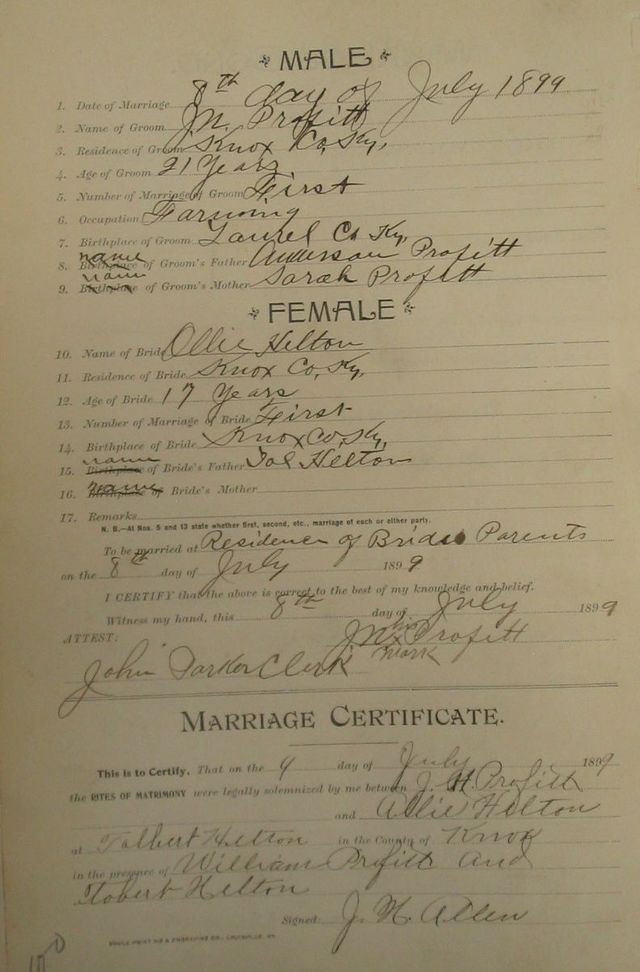 MALE
1. Date of Marriage 8th day of July 1899
2. Name of Groom J.M. Profitt
3. Residence of Groom Knox Co, Ky,
4. Age of Groom 21 Years
5. Number of Marriage of Groom First
6. Occupation Farming
7. Birthplace of Groom Laurel Co Ky,
8. Birthplace name of Groom's Father Anderson Profitt
9. Birthplace name of Groom's Mother Sarah Profitt
FEMALE
10. Name of Bride Ollie Helton
11. Residence of Bride Knox Co, Ky,
12. Age of Bride 17 Years
13. Number of Marriage of Bride First
14. Birthplace of Bride Knox Co, Ky,
15. Birthplace name of Bride's Father Tol Helton
16. Birthplace name of Bride's Mother
17. Remarks
N. B.—At Nos. 5 and 13 state whether first, second, etc., marriage of each or either party.
To be married at Residence of Brides Parents
on the 8th day of July 1899
I CERTIFY that the above is correct to the best of my knowledge and belief.
Witness my hand, this 8th day of July 1899
ATTEST: J M his x mark Profitt
John Parker Clerk
MARRIAGE CERTIFICATE.
This is to Certify, That on the 9 day of July 1899
the RITES OF MATRIMONY were legally solemnized by me between J. H. Profitt
and Allie Hilton
at Talbert Helton in the County of Knox
in the presence of William Profitt and
Tobert Hilton
Signed: J. H. Allen